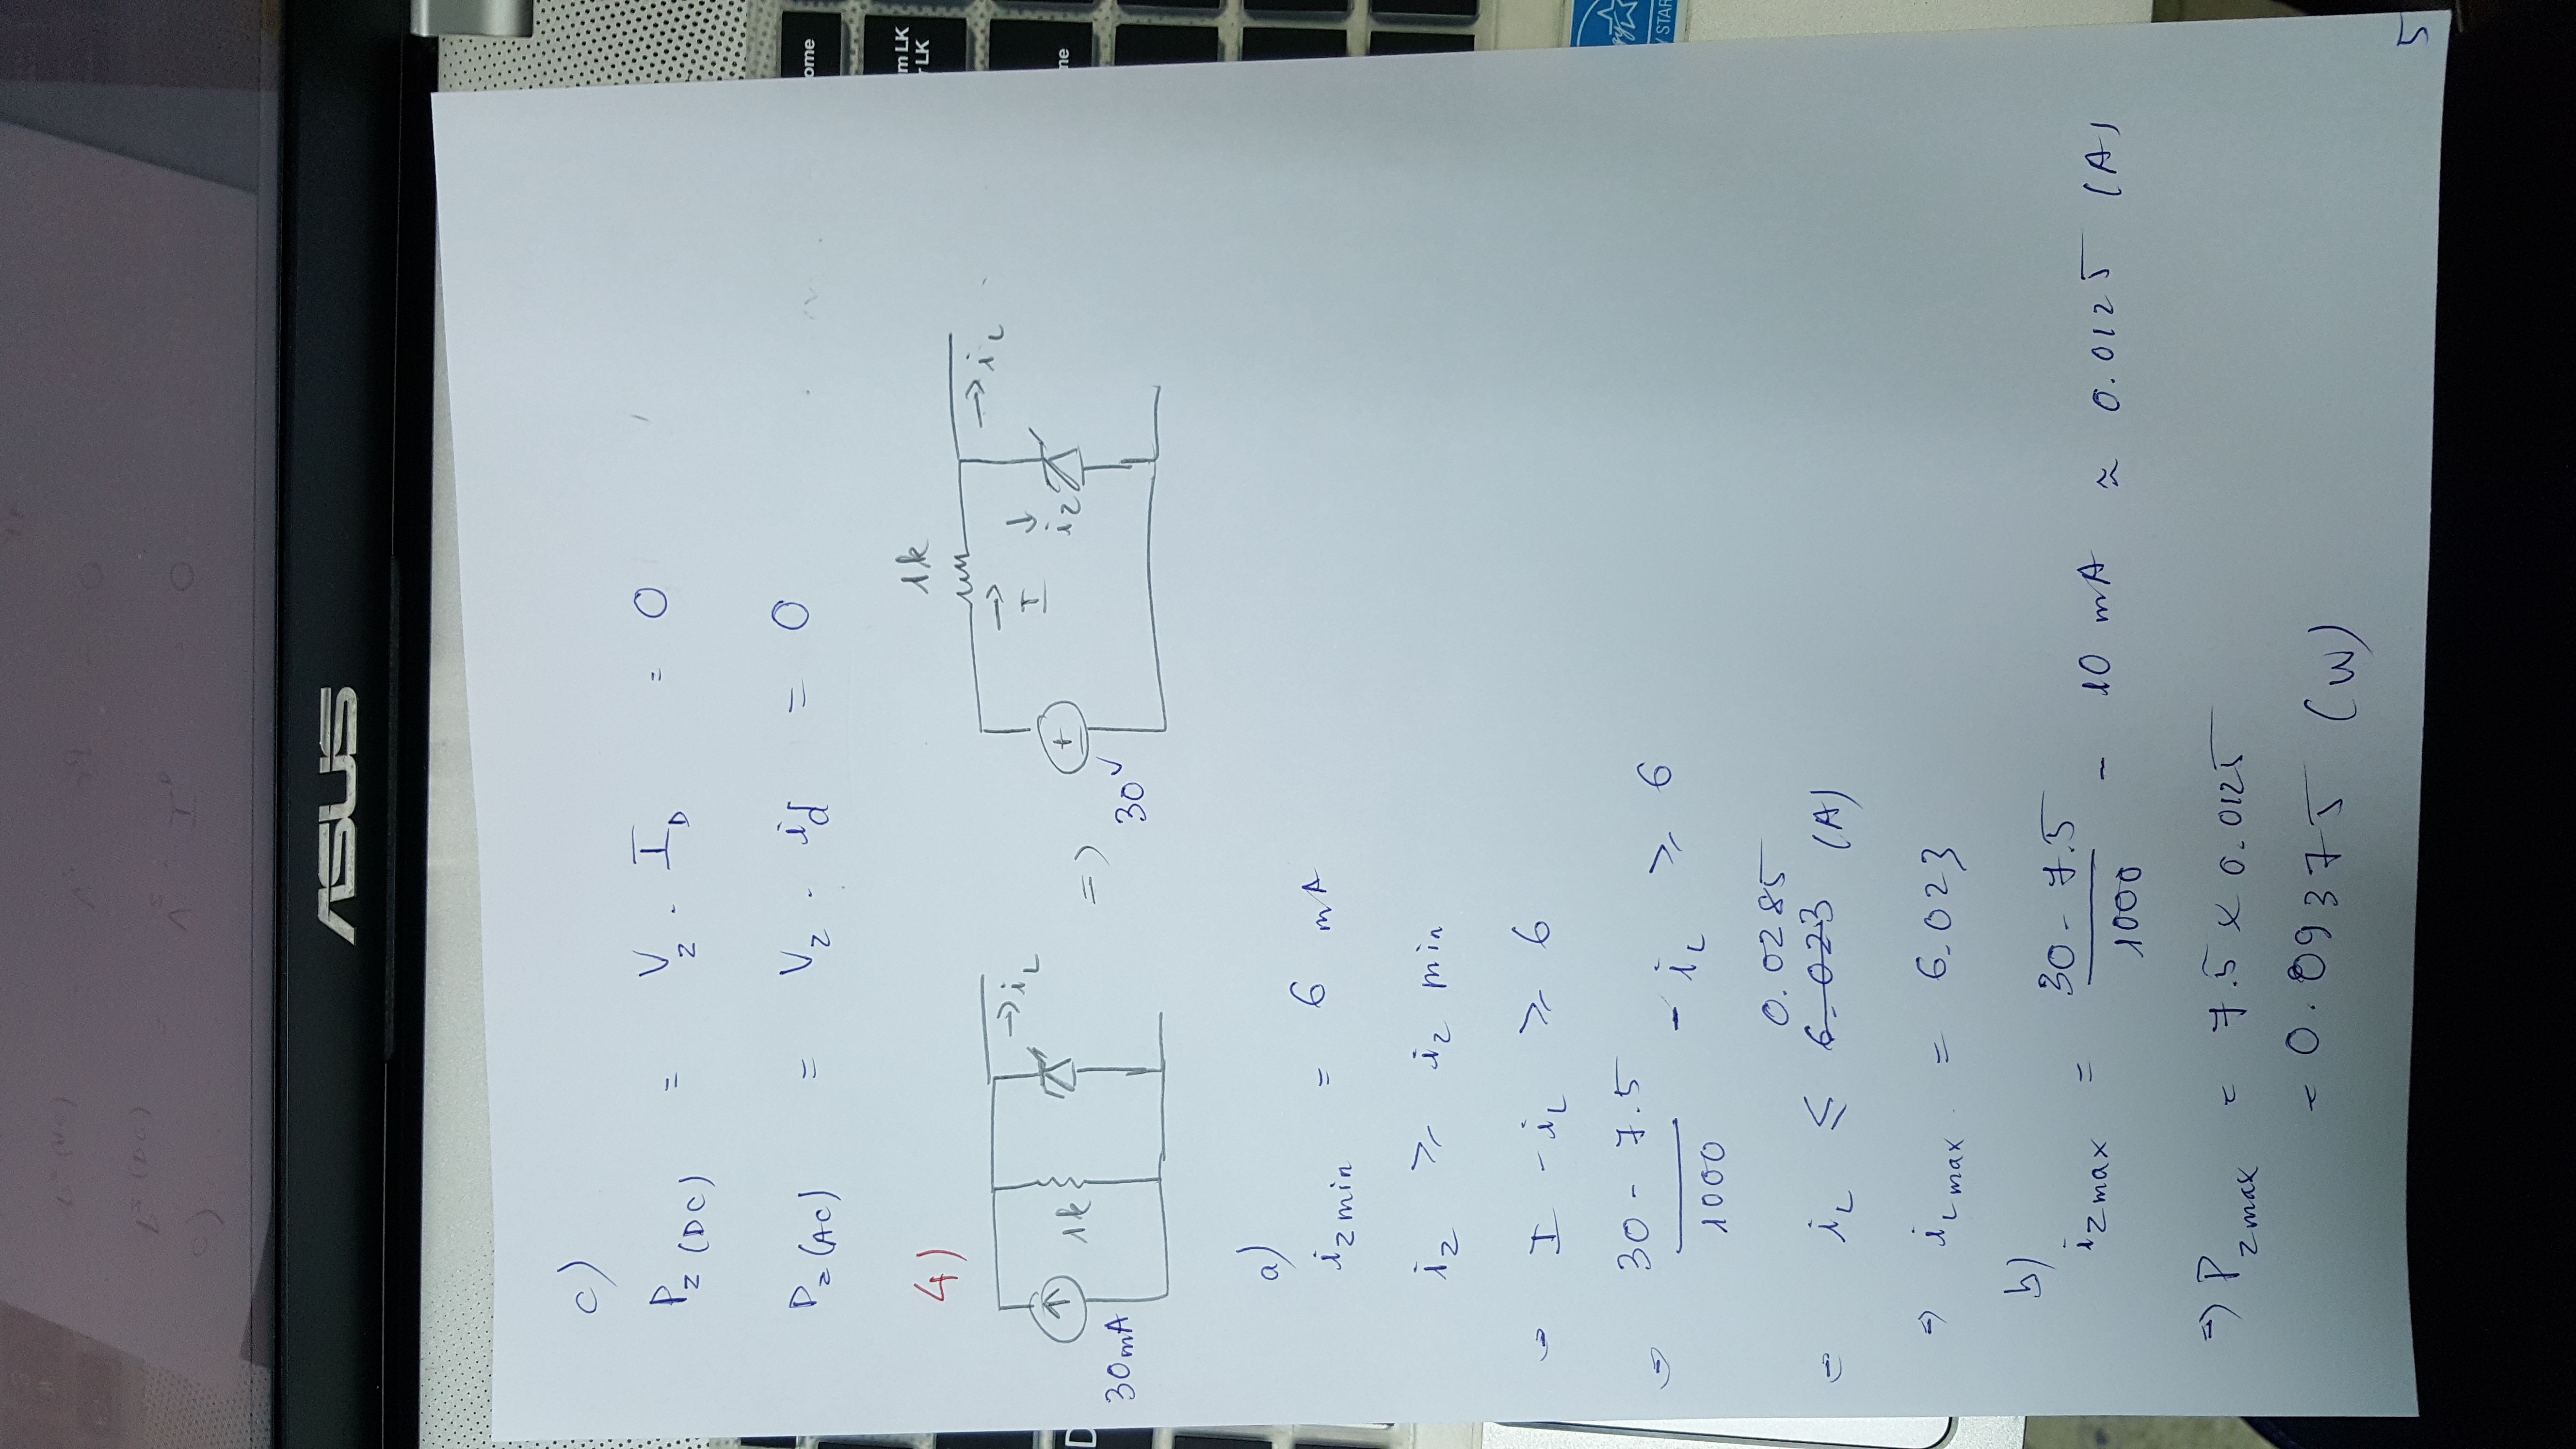 ASUS
c)
P_z (DC) = V_z . I_D = 0
P_z (AC) = V_z . i_d = 0
4)
30mA 1k → i_L ⇒ 30V 1k → I ↓ i_z → i_L
a)
i_z min = 6 mA
i_z ⩾ i_z min
⇒ I - i_L ⩾ 6
⇒ (30 - 7.5)/1000 - i_L ⩾ 6
0.0285
⇒ i_L ⩽ 6.023 (A)
⇒ i_L max = 6.023
b)
i_z max = (30 - 7.5)/1000 - 10 mA ≈ 0.0125 (A)
⇒ P_z max = 7.5 × 0.0125
= 0.09375 (W)
5
ome
m LK
LK
STAR